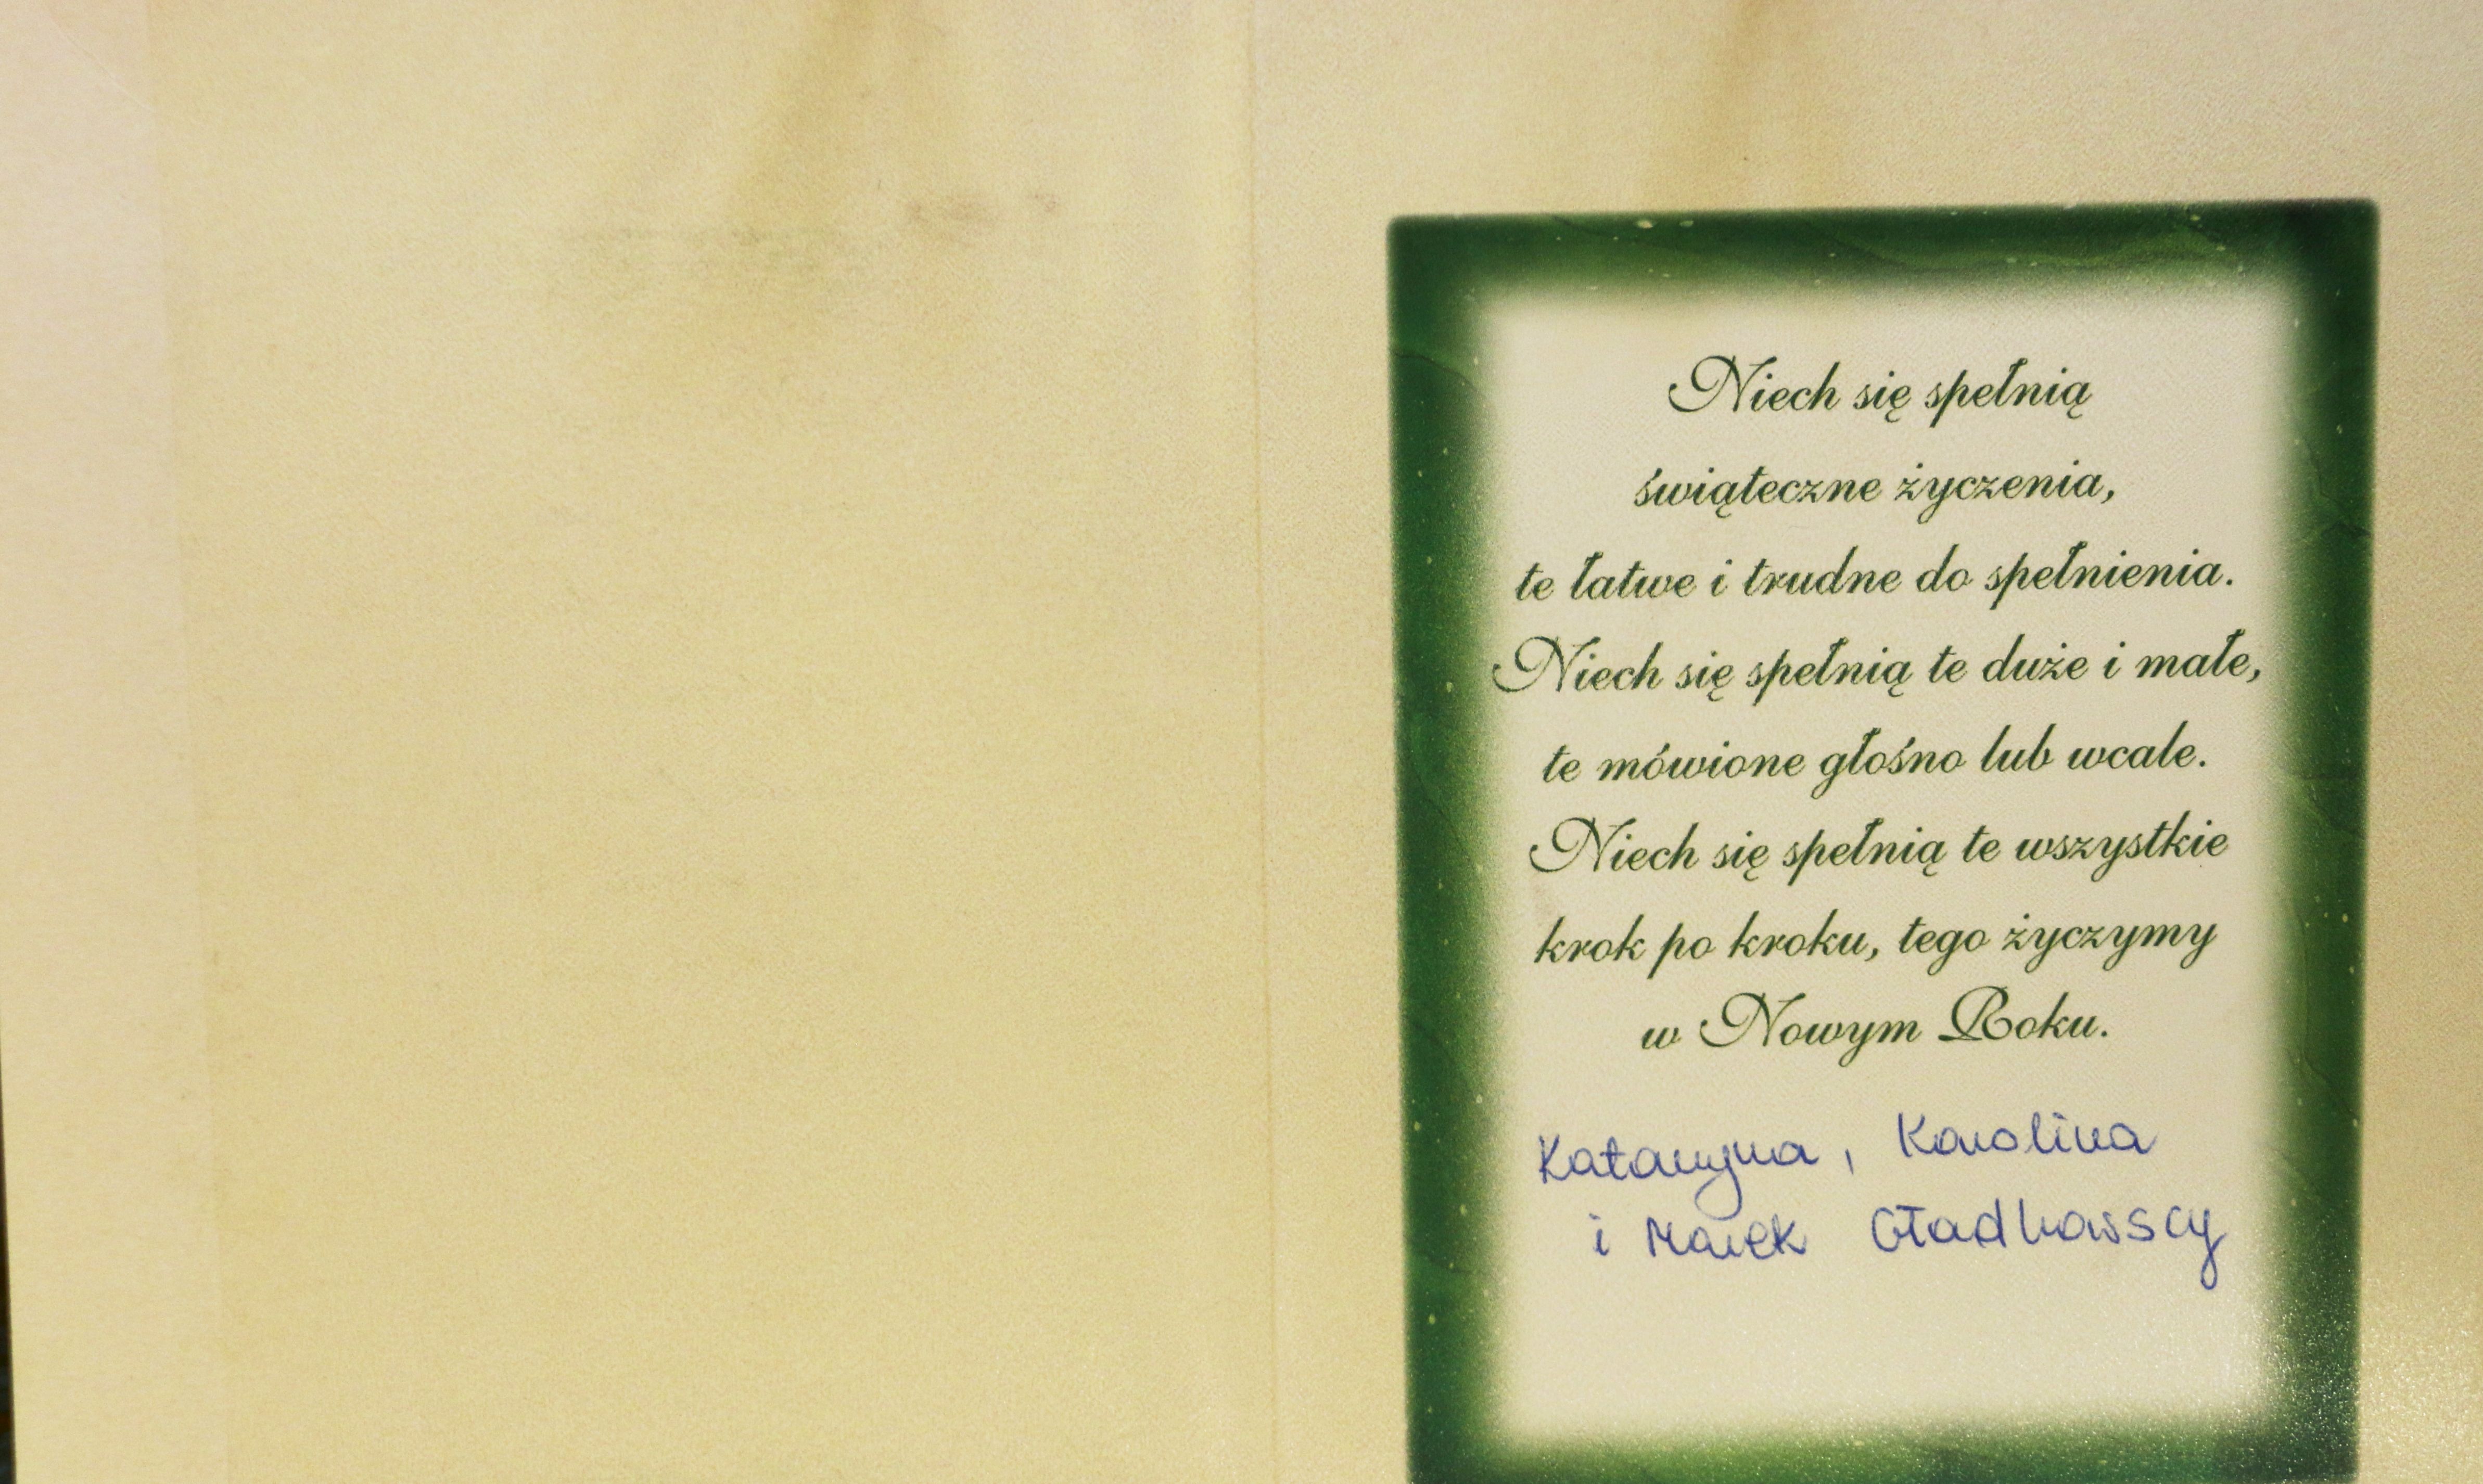 Niech się spełnią
świąteczne życzenia,
te łatwe i trudne do spełnienia.
Niech się spełnią te duże i małe,
te mówione głośno lub wcale.
Niech się spełnią te wszystkie
krok po kroku, tego życzymy
w Nowym Roku.
Katarzyna, Karolina
i Marek Gładkowscy